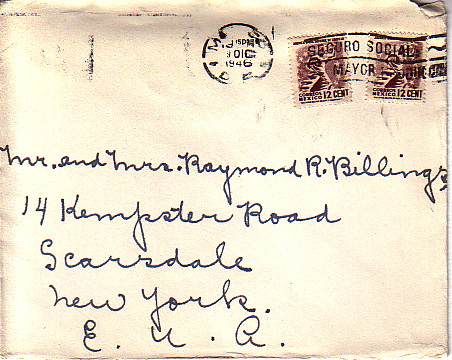 15DIC
1946
SEGURO SOCIAL
MAYOR
CORREOS MEXICO 12 CENT
CORREOS MEXICO 12 CENT
Mr. and Mrs. Raymond R. Billings
14 Kempster Road
Scarsdale
New York.
E. U. A.